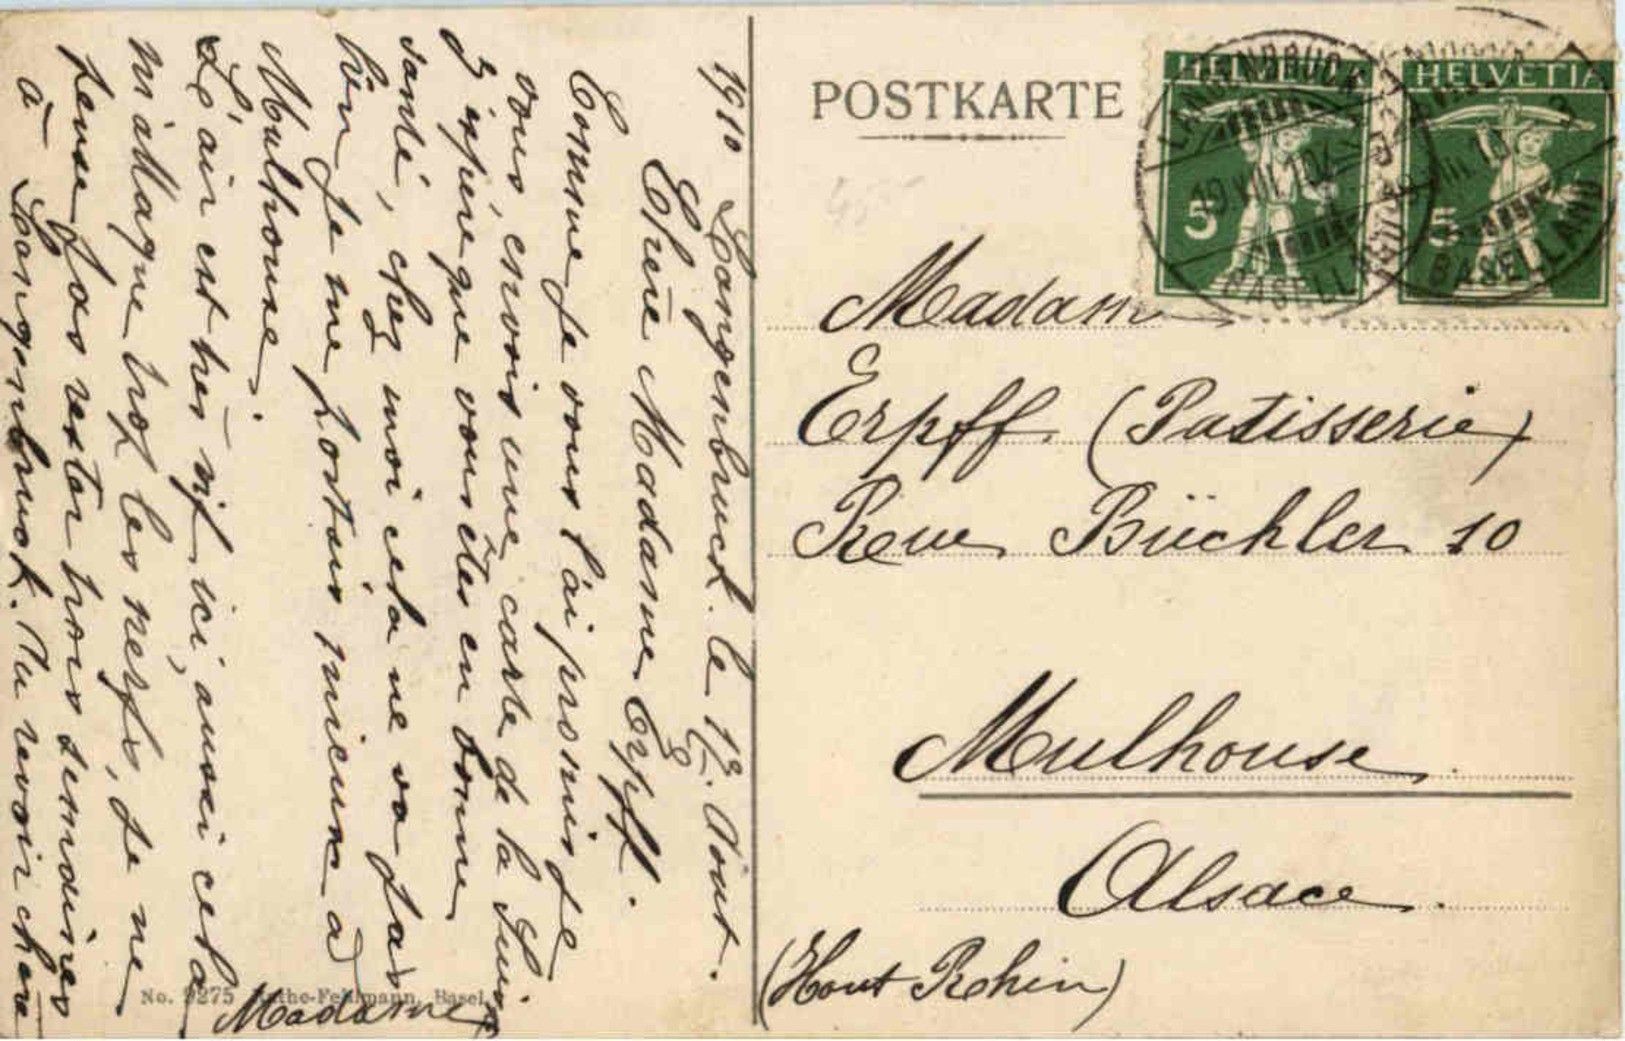 POSTKARTE
HELVETIA
HELVETIA
5
5
LANGENBRUCK
BASELLAND
BASELLAND
19 VIII.10
VIII.10
Madame
Erpff. (Patisserie)
Reue Büchler 10
Mulhouse.
Alsace.
(Hout Rehin)
1910 Langenbruck. le 19. Août.
Chère Madame Erpff.
Comme je vous l'ai promis je
vous envois une carte de la Suisse
J'éspère que vous êtes en bonne
santé, chez moi cela ne va pas
bien Je me portais mieux a
Mulhouse.
L'air est très vif ici, aussi cela
m'attaque trop les nerfs, Je ne
pense pas rester trois semaines
à Langenbruck. Au revoir chère
Madame
No. 9275 Rathe-Fehlmann, Basel.